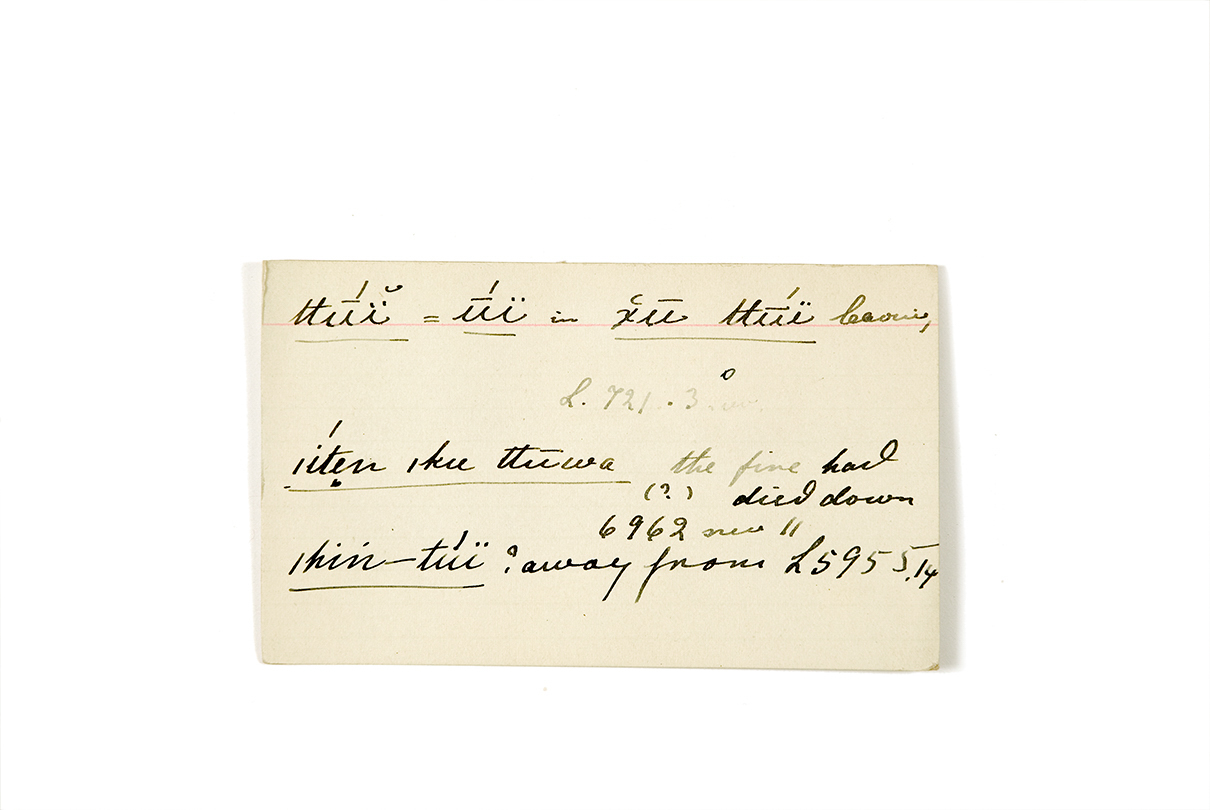 ttū́ï̆ = ū́ï in x̌ū ttū́ï leave,
L. 721. 3 rev.
ı́ıten ı̣ku ttūwa the fire had
(?) died down
6962 rev 11
ıkiń-tū́ï ? away from L5955.14